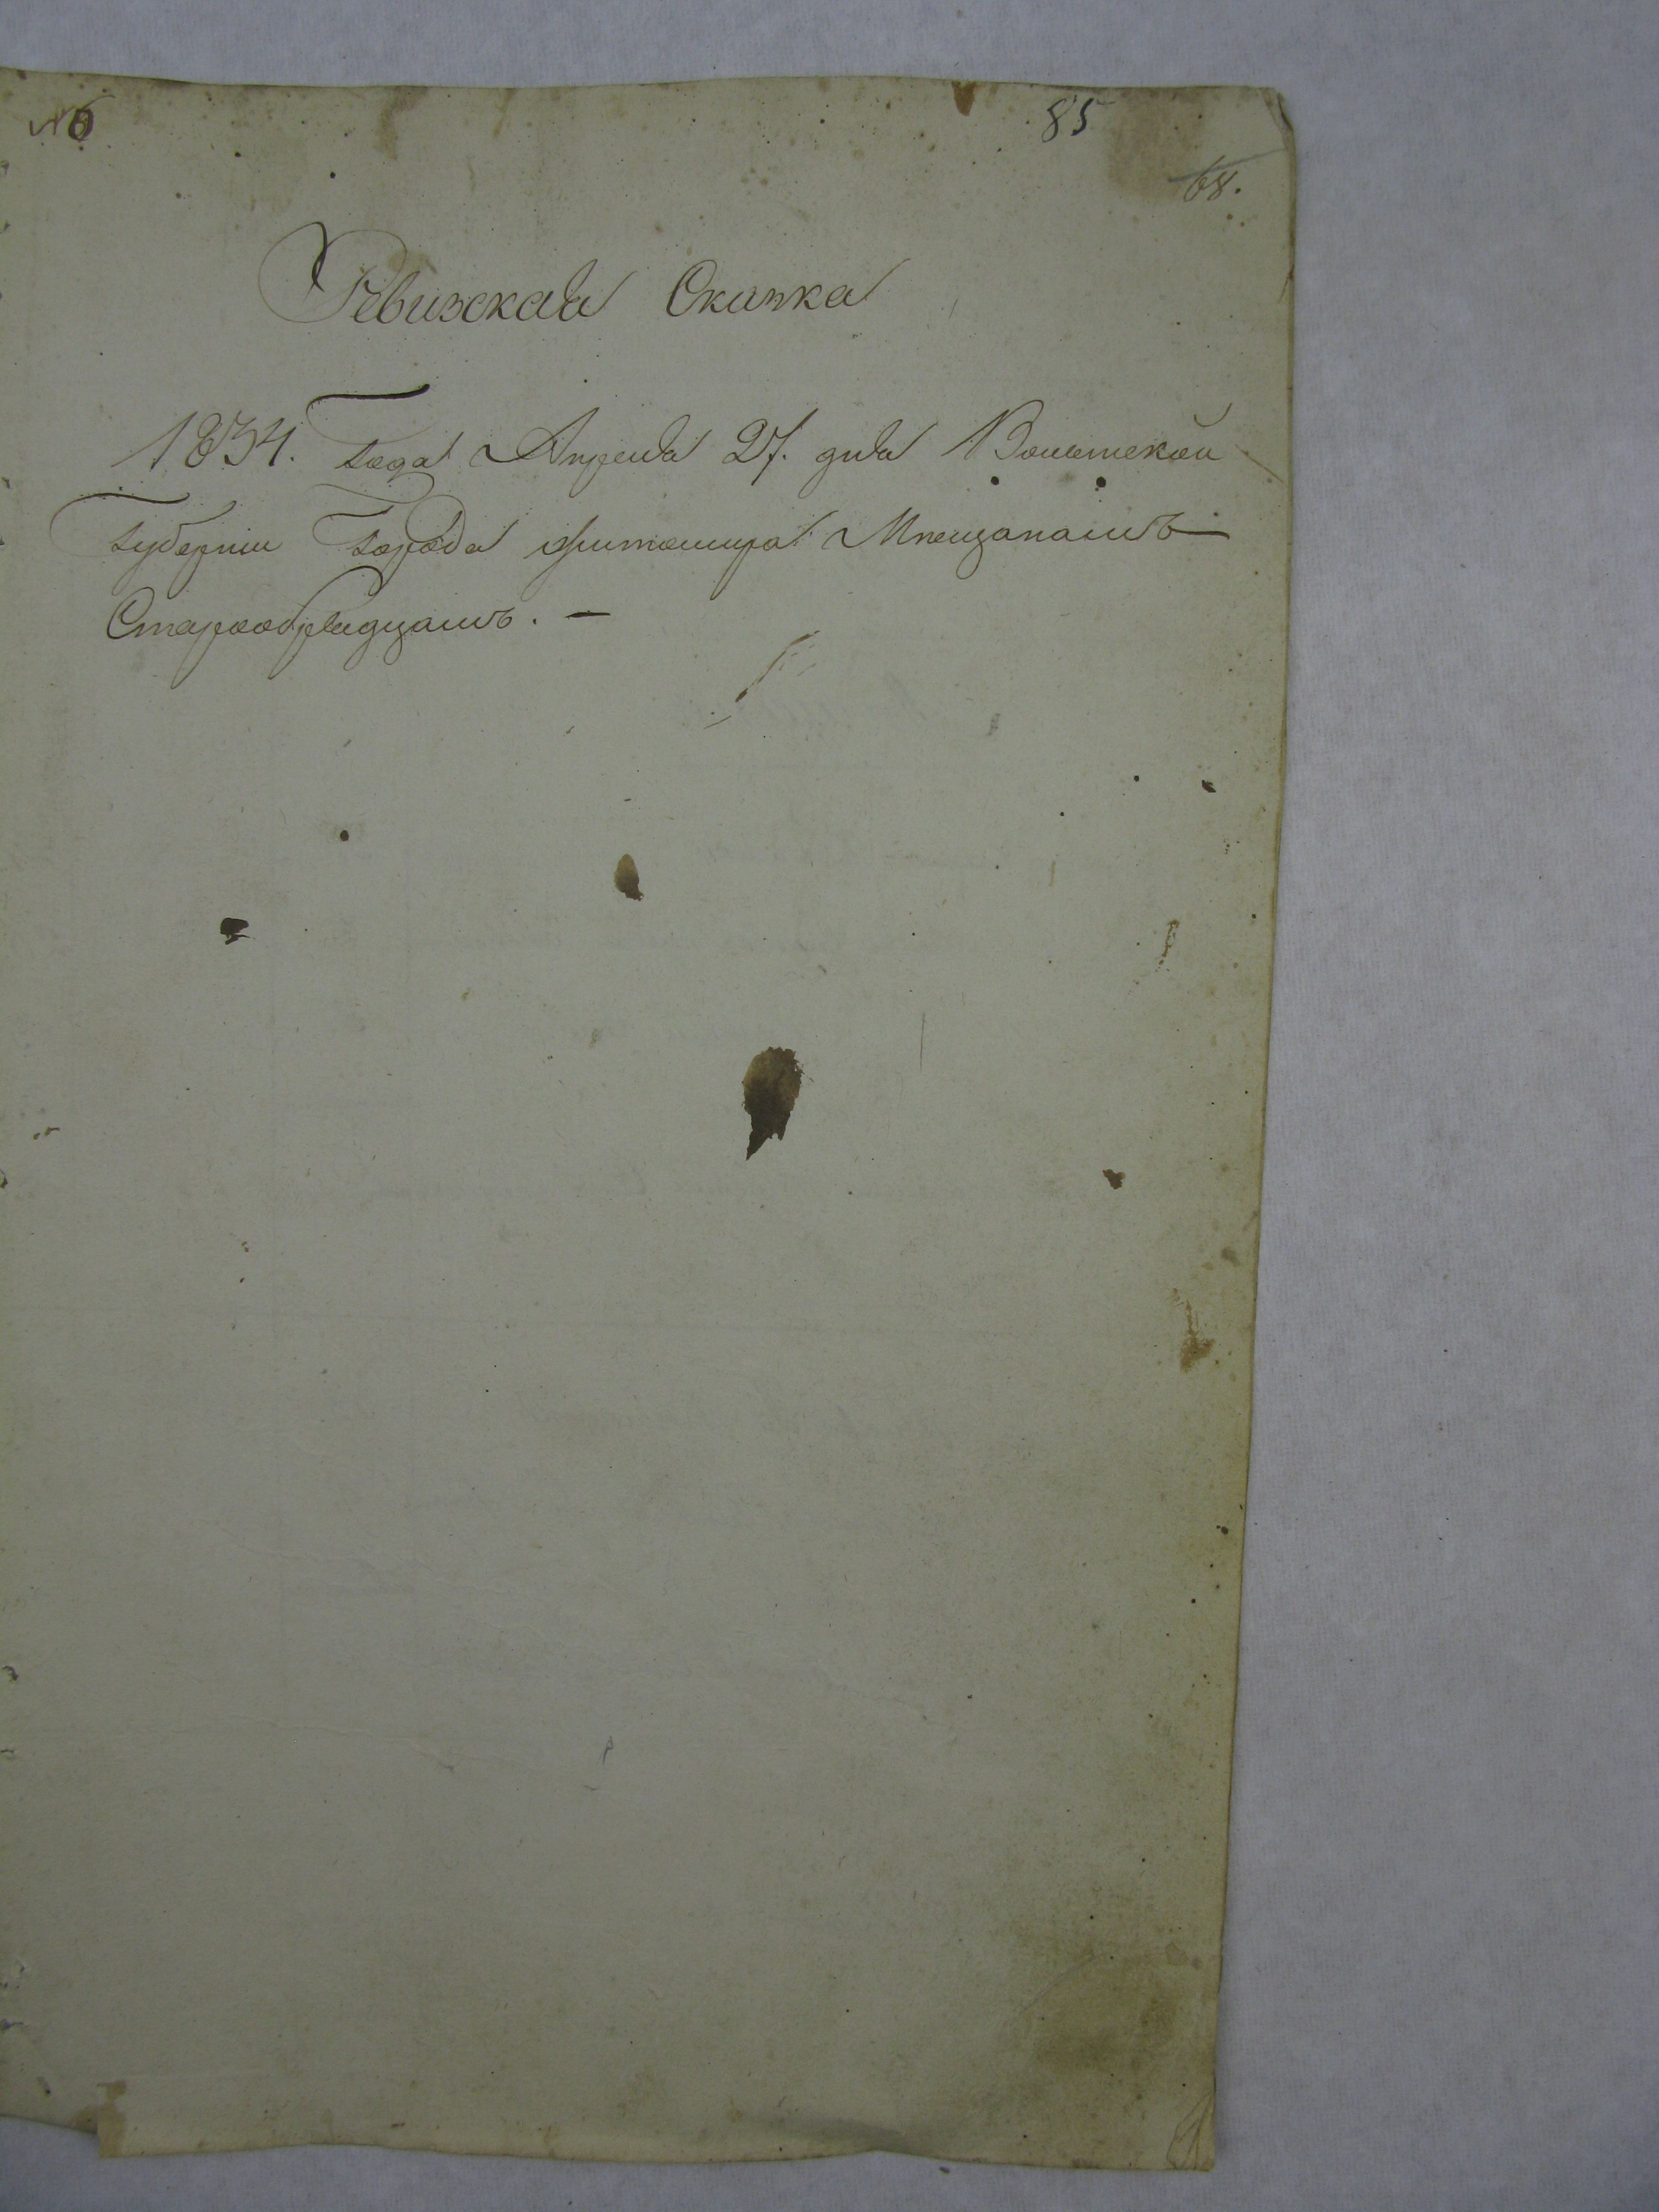 85
68.
Ревизская Сказка
1834. года Апреля 27. дня Волынской
Губернии Города Житомира Мещанамъ
Старообрядцамъ. —